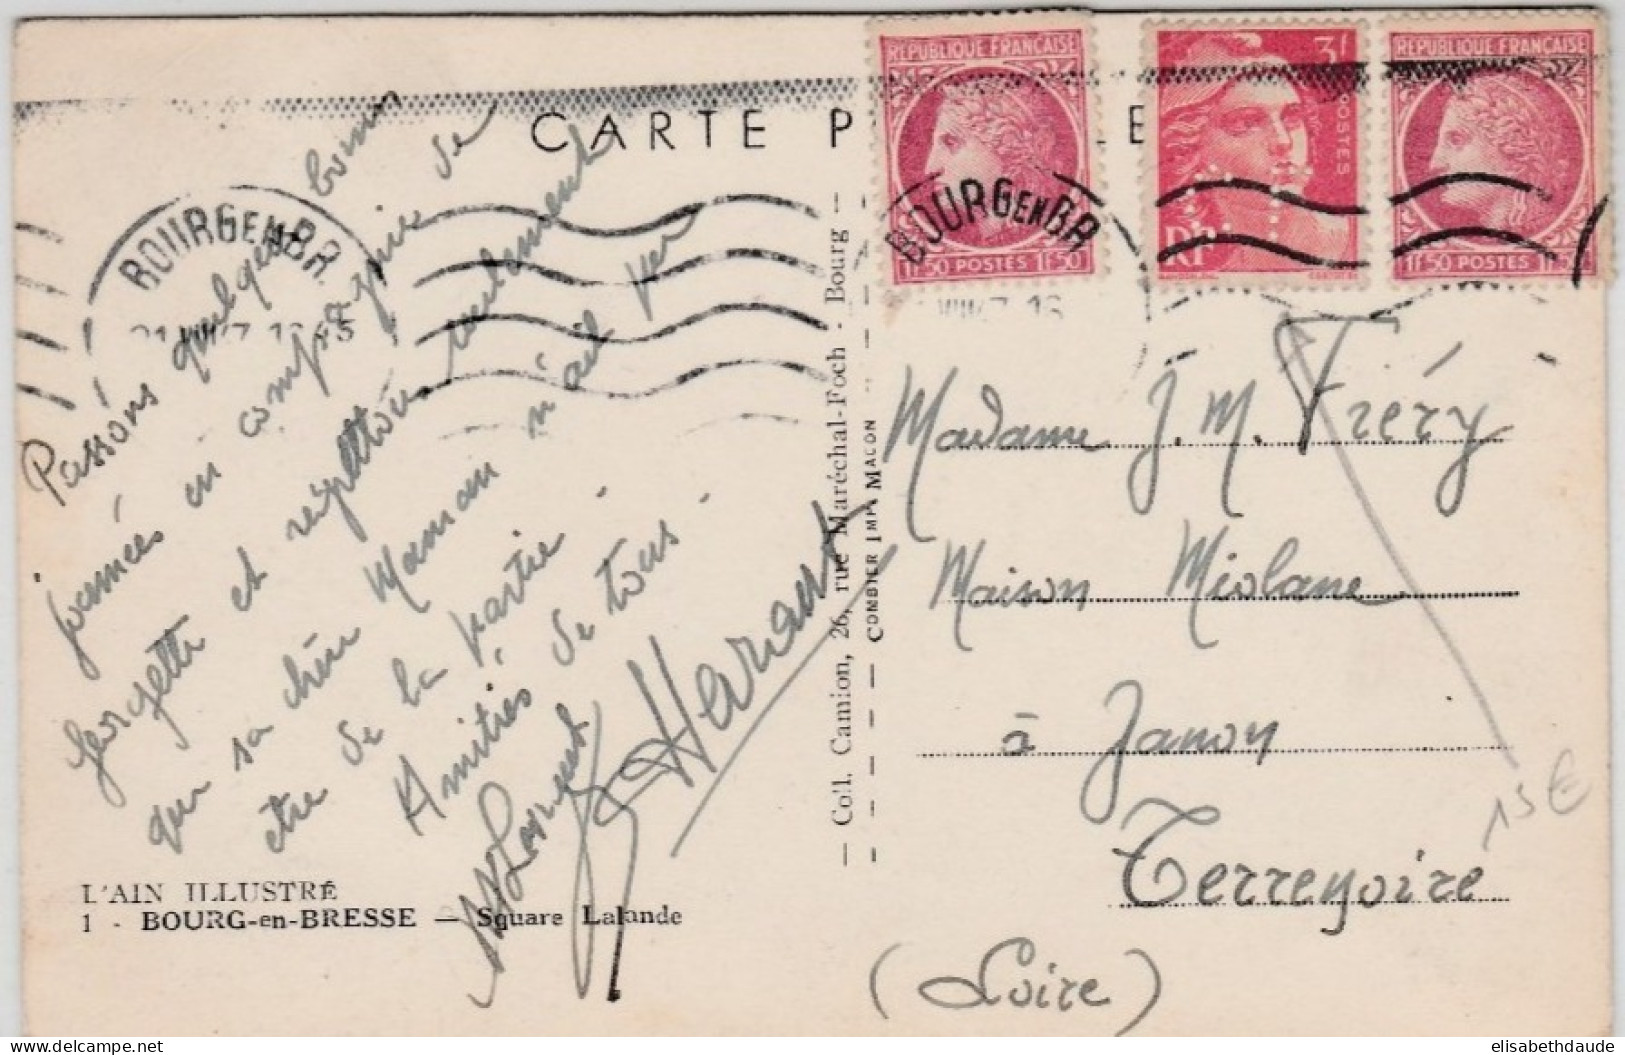 RÉPUBLIQUE FRANÇAISE
1F50 POSTES 1F50
3F
POSTES
RF
RÉPUBLIQUE FRANÇAISE
1F50 POSTES 1F50
CARTE P E
BOURG EN BR.
BOURG EN BR.
Passons quelques bonnes
journées en compagnie de
Georgette et regrettons seulement
que sa chère Maman n'ait pu
être de la partie.
Amitiés de tous.
— Coll. Camion, 26, rue Maréchal-Foch - Bourg —
COMBIER IMP. MACON
Madame J. M. Fréry
Maison Miolane
à Janon
Terrenoire
(Loire)
15 €
L'AIN ILLUSTRÉ
1 - BOURG-en-BRESSE — Square Lalande
elisabethdaude